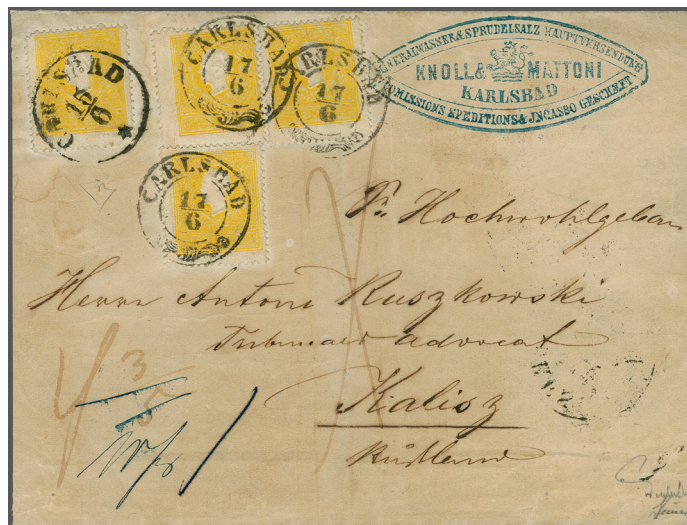 CARLSBAD
15
6
CARLSBAD
17
6
CARLSBAD
17
6
CARLSBAD
17
6
MINERALWASSER & SPRUDELSALZ HAUPTVERSENDUNG
KNOLL & MATTONI
KARLSBAD
COMMISSIONS SPEDITIONS & JNCASSO GESCHÆFT
Sr. Hochwohlgeboren
Herrn Antoni Ruszkowski
Advocat
Kalisz
Rußland
3
5